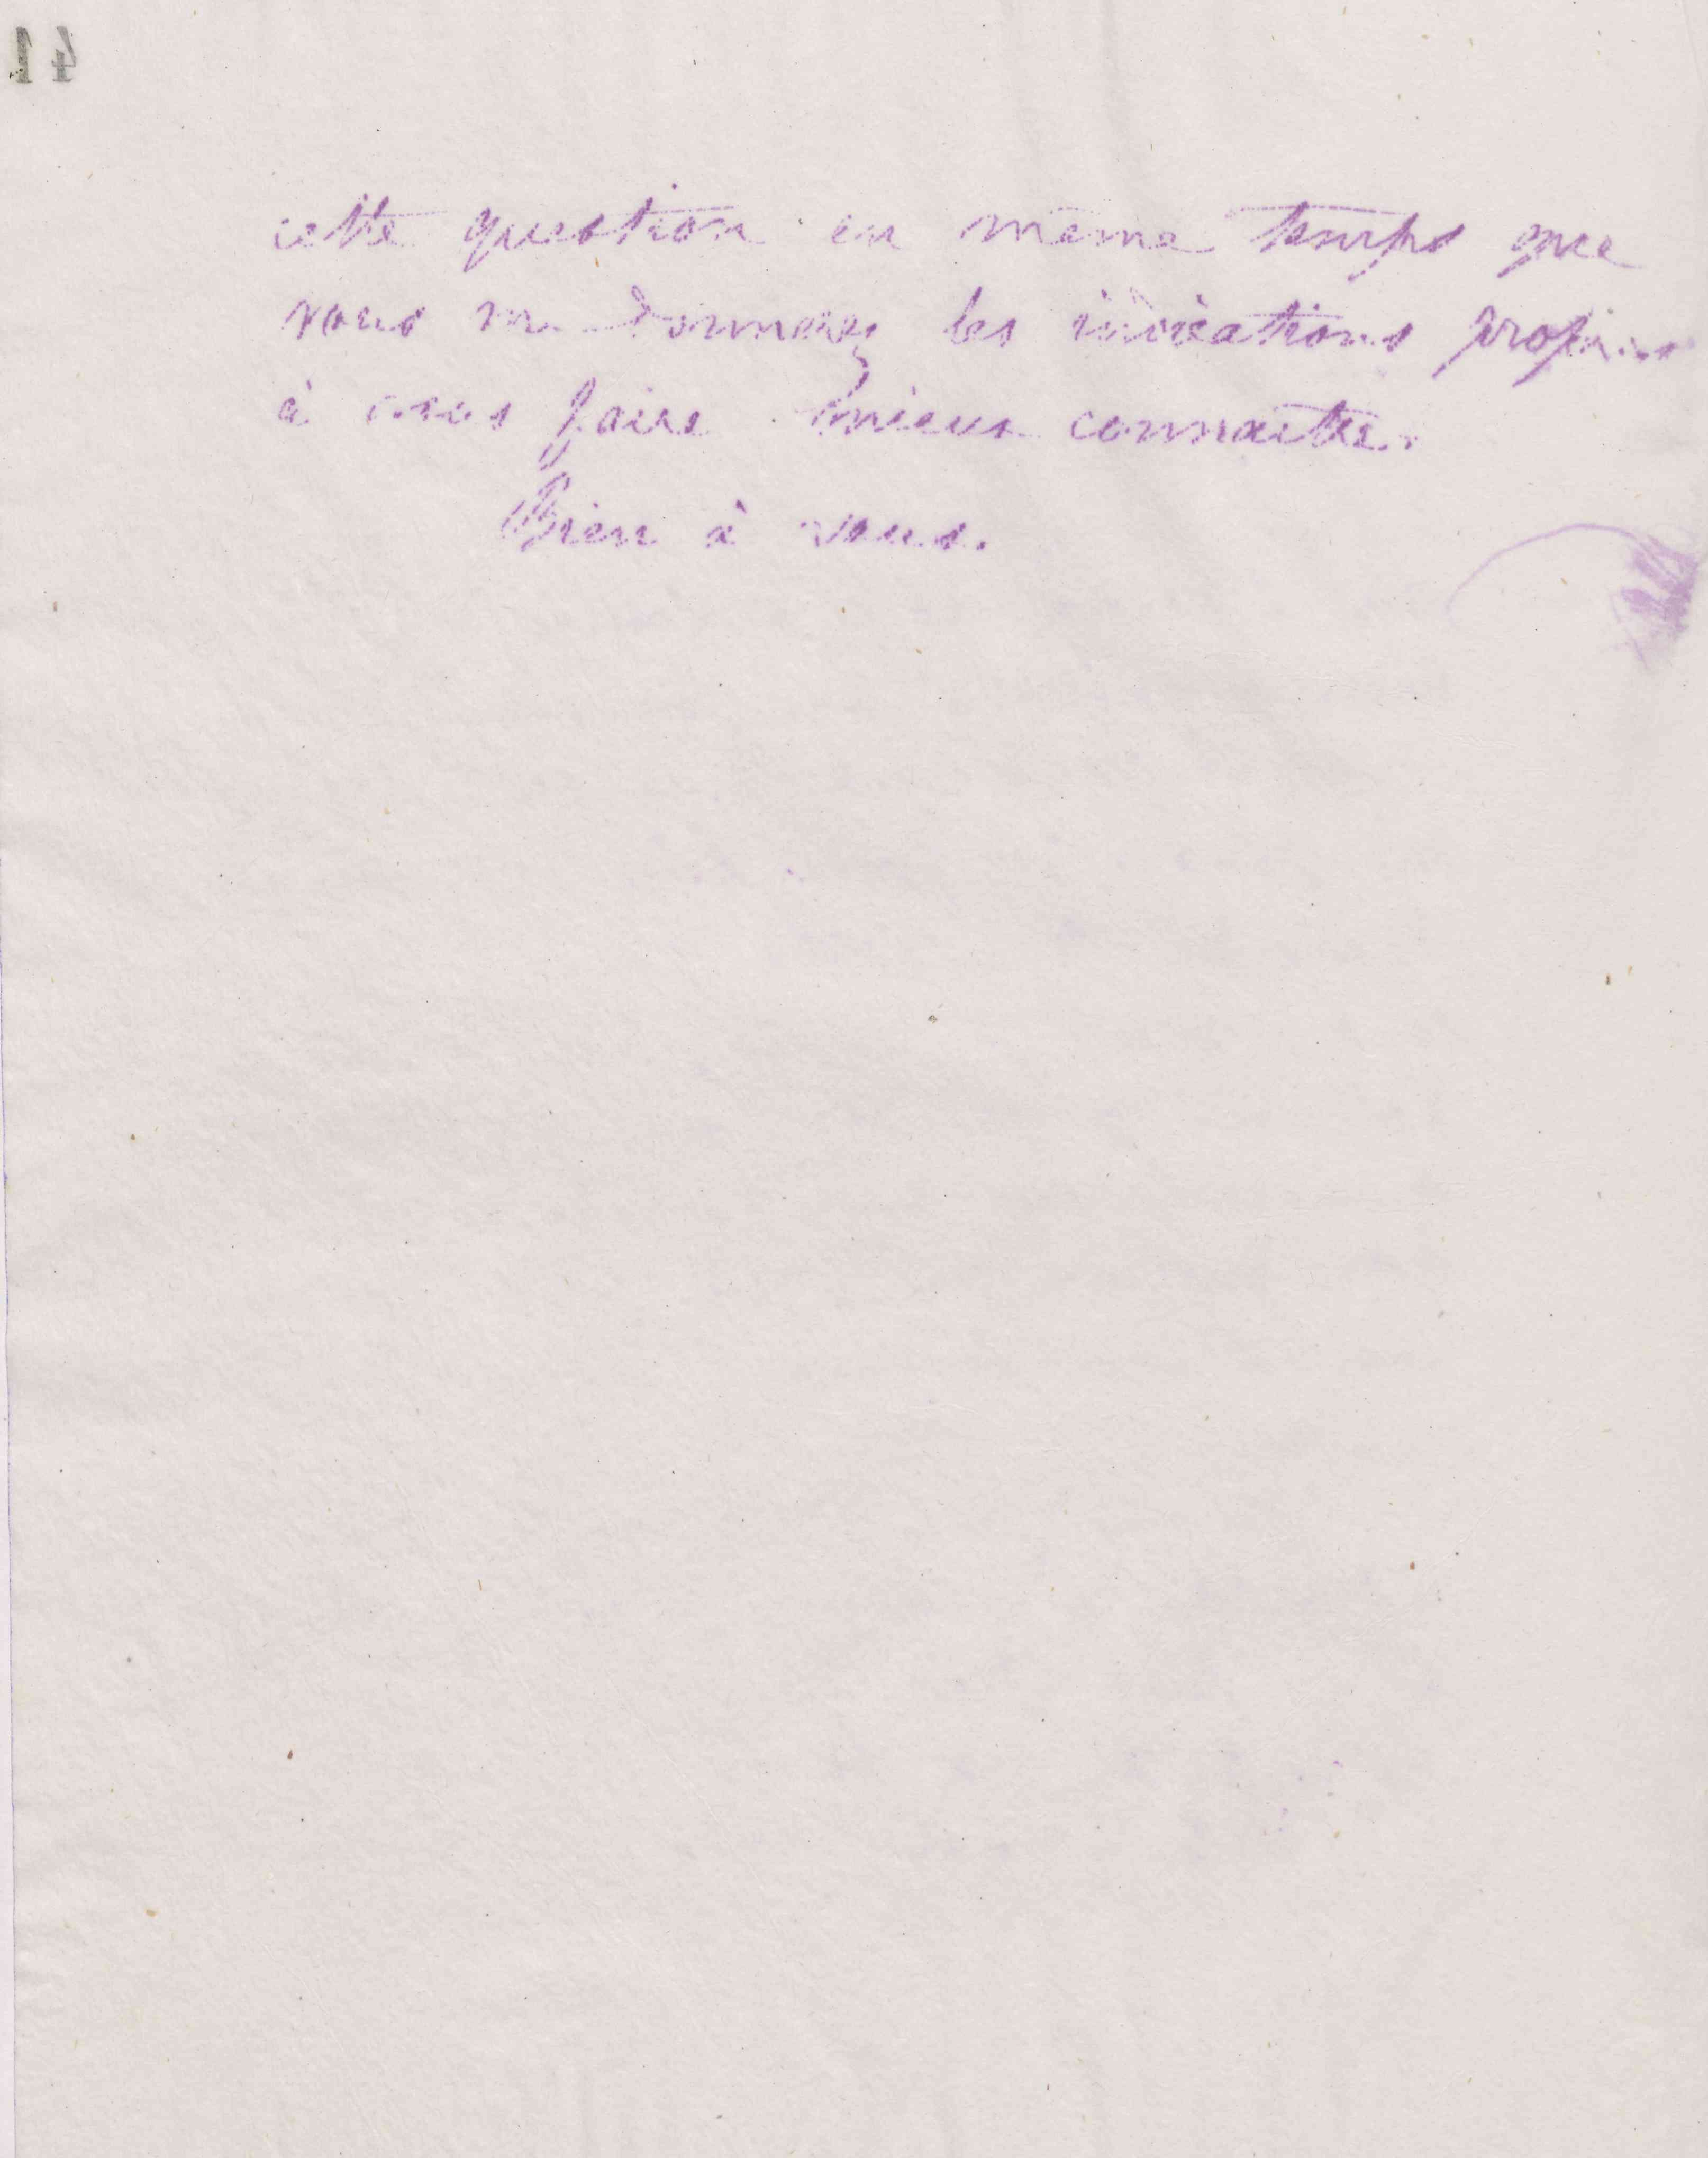 41
cette question en même temps que
vous me donnerez les indications propres
à vous faire mieux connaître.
Bien à vous.